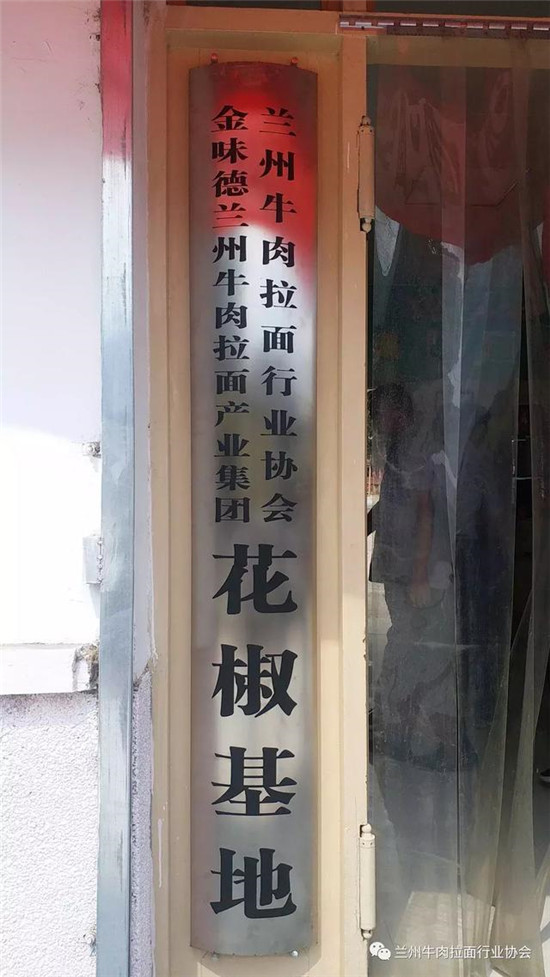 兰州牛肉拉面行业协会
金味德兰州牛肉拉面产业集团
花椒基地
兰州牛肉拉面行业协会